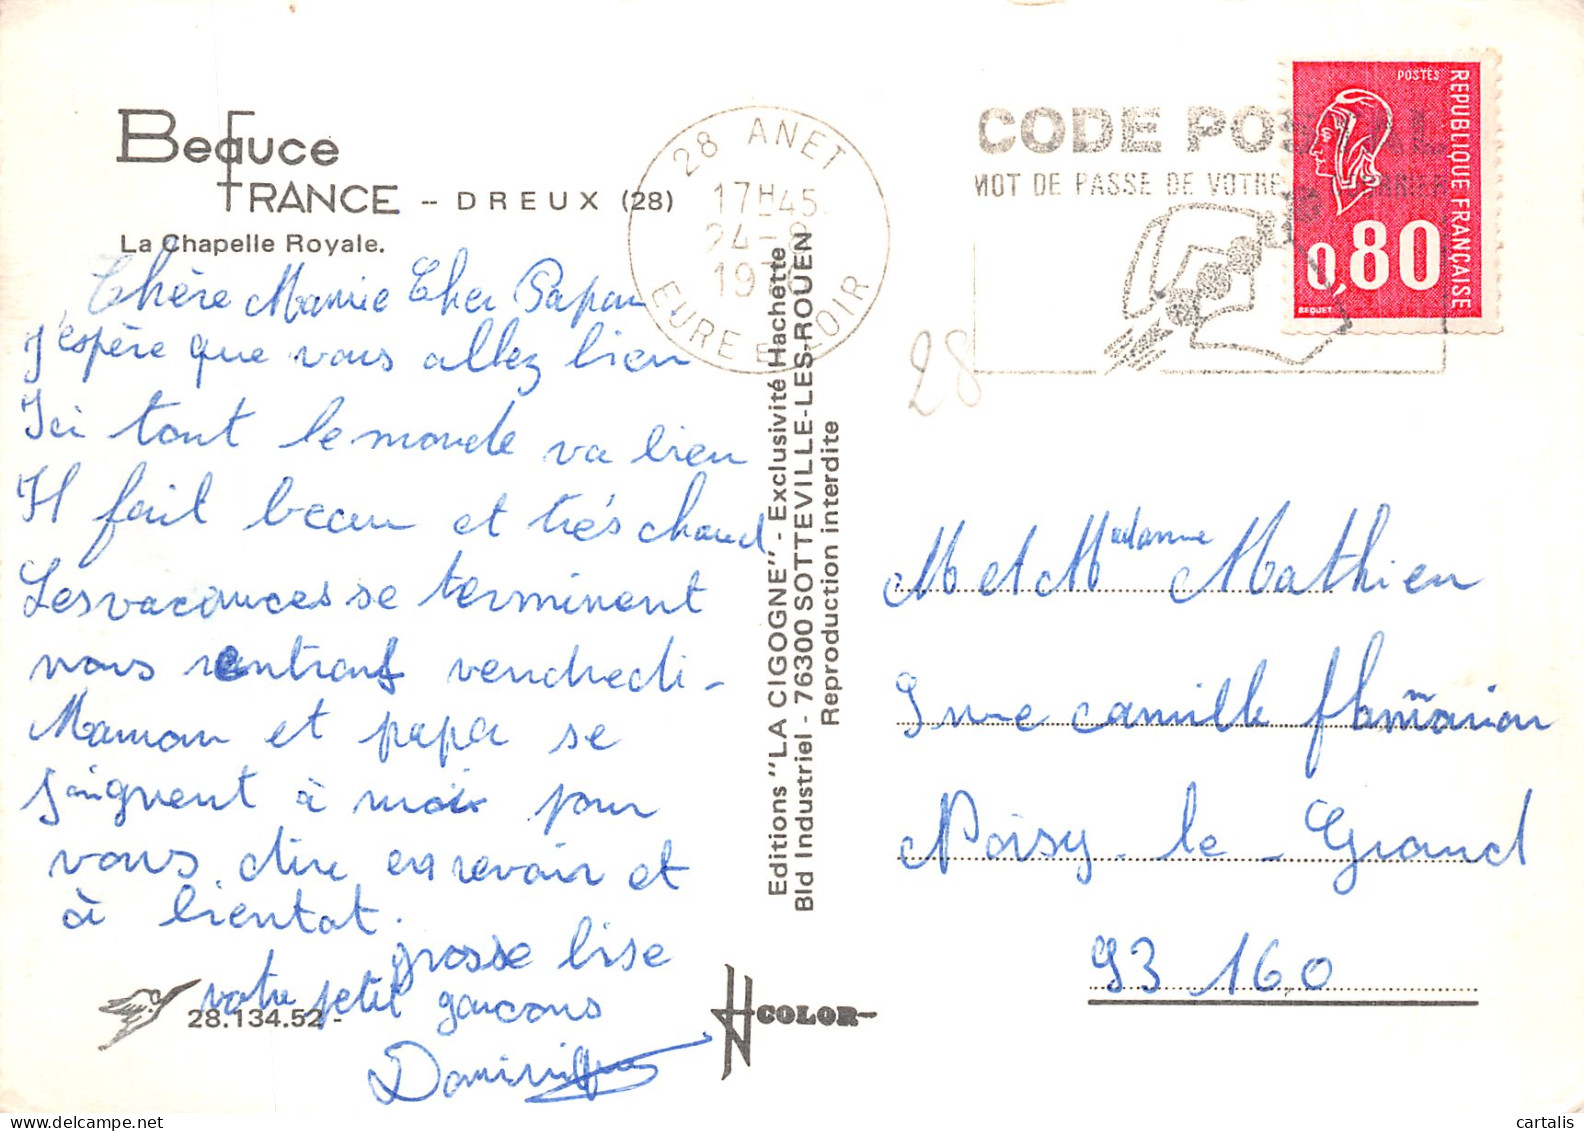 Beauce
FRANCE -- DREUX (28)
La Chapelle Royale.
Chère Mamie Cher Papou
J'espère que vous allez bien
Ici tout le monde va bien
Il fait beau et très chaud
Les vacances se terminent
nous rentrons vendredi -
Maman et papa se
joignent à moi pour
vous dire en revoir et
à bientot.
grosse bise
votre petit garcons
Dominique
28.134.52 -
Editions "LA CIGOGNE" - Exclusivité Hachette
Bld Industriel - 76300 SOTTEVILLE-LES-ROUEN
Reproduction interdite
COLOR
28 ANET
17H45
24-8
19
EURE E LOIR
CODE POSTAL
MOT DE PASSE DE VOTRE COURRIER
POSTES
REPUBLIQUE FRANÇAISE
0,80
BEQUET
28
M et Madame Mathieu
9 rue camille flammarion
Noisy - le - Grand
93 160
cartalis